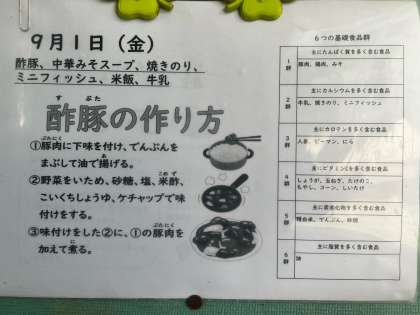 9月1日（金）
酢豚、中華みそスープ、焼きのり、
ミニフィッシュ、米飯、牛乳
す ぶた
酢豚の作り方
ぶたにく
①豚肉に下味を付け、でんぷんを
あ
まぶして油で揚げる。
こめず
②野菜をいため、砂糖、塩、米酢、
こいくちしょうゆ、ケチャップで味
付けをする。
ぶたにく
③味付けをした②に、①の豚肉を
に
加えて煮る。
６つの基礎食品群
1群
主にたんぱく質を多く含む食品
豚肉、鶏肉、みそ
2群
主にカルシウムを多く含む食品
牛乳、焼きのり、ミニフィッシュ
3群
主にカロテンを多く含む食品
人参、ピーマン、にら
4群
主にビタミンCを多く含む食品
しょうが、玉ねぎ、たけのこ、
もやし、コーン、しいたけ
5群
主に炭水化物を多く含む食品
精白米、でんぷん、砂糖
6群
主に脂質を多く含む食品
油